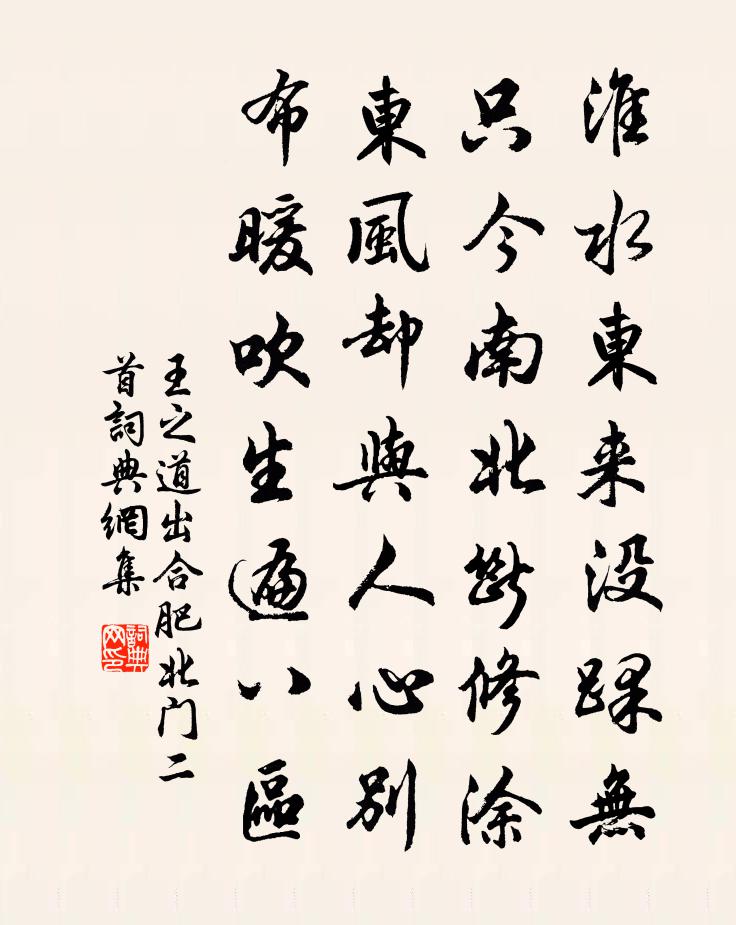 淮水東来没踝無
只今南北斷修涂
東風却與人心别
布暖吹生遍八區
王之道出合肥北门二
首詞典網集
詞典
网印